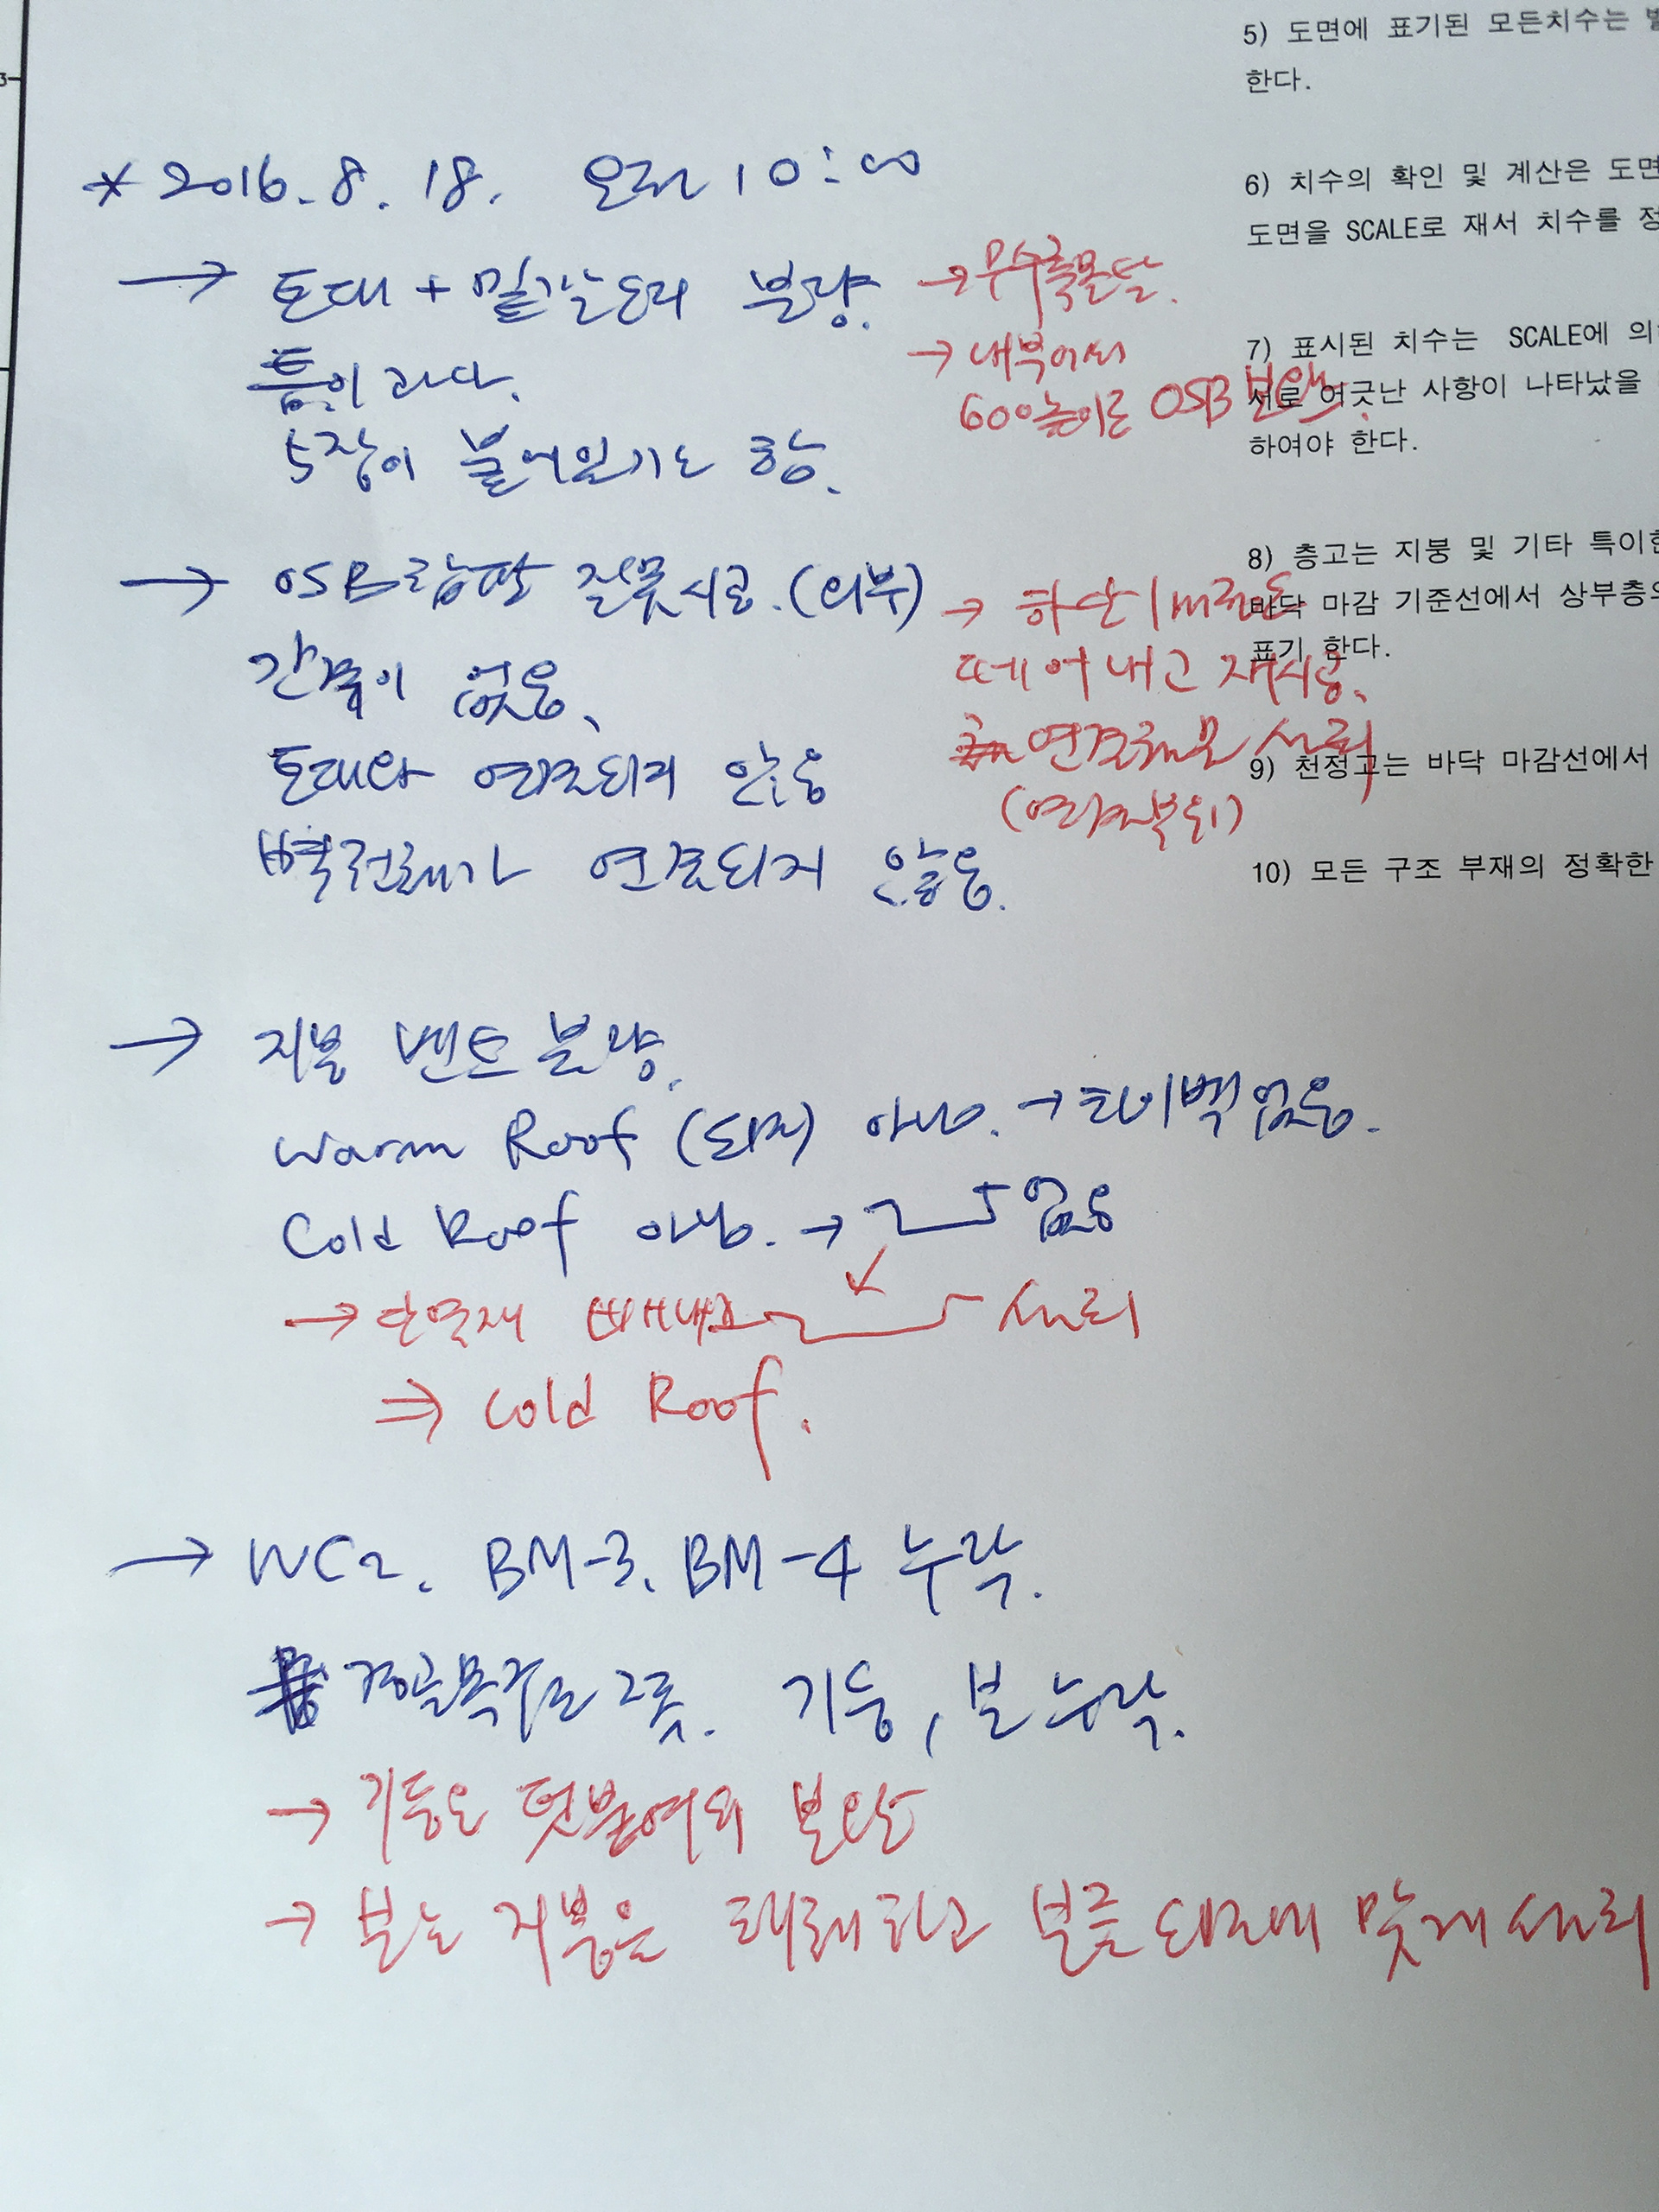 5) 도면에 표기된 모든치수는
한다.
6) 치수의 확인 및 계산은 도면
도면을 SCALE로 재서 치수를
7) 표시된 치수는 SCALE에
서로 여긋난 사항이 나타났을
하여야 한다.
8) 층고는 지붕 및 기타
바닥 마감 기준선에서
표기 한다.
9) 천정고는 바닥 마감선에서
10) 모든 구조 부재의 정확한
3
* 2016. 8. 18. 오전 10:00
→ 토대 + 밑깔도리 불량.
→ 무수축몰탈.
틈이 크다.
→ 내부에서
600높이로 OSB 보강.
5장이 붙어있기도 함.
→ OSB합판 잘못시공. (외부)
→ 하단 1m정도
떼어내고 재시공.
간격이 없음.
연결철물 설치
(연결부위)
토대와 연결되지 않음
벽전체가 연결되지 않음.
→ 지붕 벤트 불량.
Warm Roof (되죠) 아님. → 타이벡 없음.
Cold Roof 아님. → 없음
→ 단열재 빼내고 설치
⇒ Cold Roof.
→ WC2. BM-3. BM-4 누락.
경골목구조 기둥, 보 누락.
→ 기둥은 덧붙여서 보강
→ 보는 지붕을 해체하고 맞게 설치